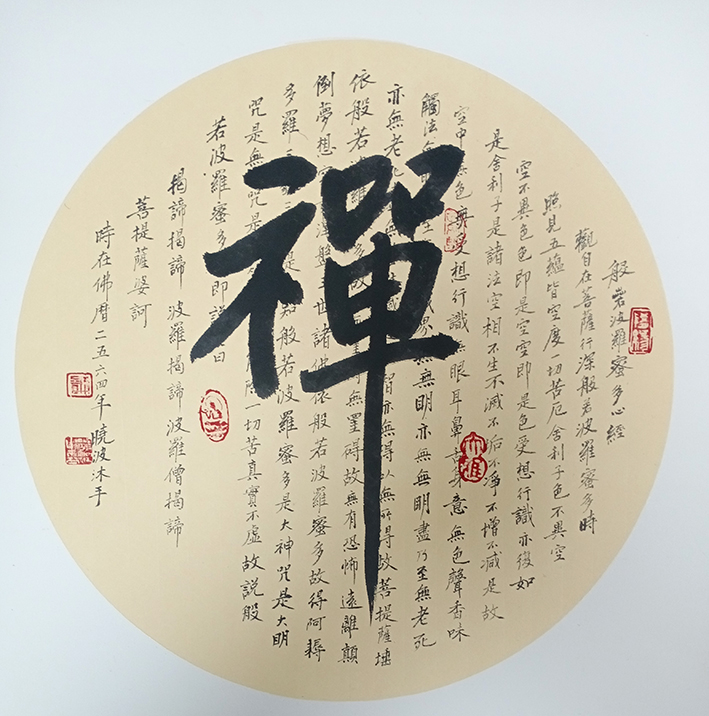 禪
般若波羅蜜多心經
觀自在菩薩行深般若波羅蜜多時
照見五蘊皆空度一切苦厄舍利子色不異空
空不異色色即是空空即是色受想行識亦復如
是舍利子是諸法空相不生不滅不垢不淨不增不減是故
空中無色無受想行識無眼耳鼻舌身意無色聲香味
觸法無界無無明亦無無明盡乃至無老死
亦無老死智亦無得以無所得故菩提薩埵
依般若波羅多故無罣得故無有恐怖遠離顛
倒夢想盤世諸佛依般若波羅蜜多故得阿耨
多羅三是知般若波羅蜜多是大神咒是大明
咒是無咒是除一切苦真實不虛故說般
若波羅蜜多即說曰
揭諦揭諦 波羅揭諦 波羅僧揭諦
菩提薩婆訶
時在佛曆二五六四年曉波沐手